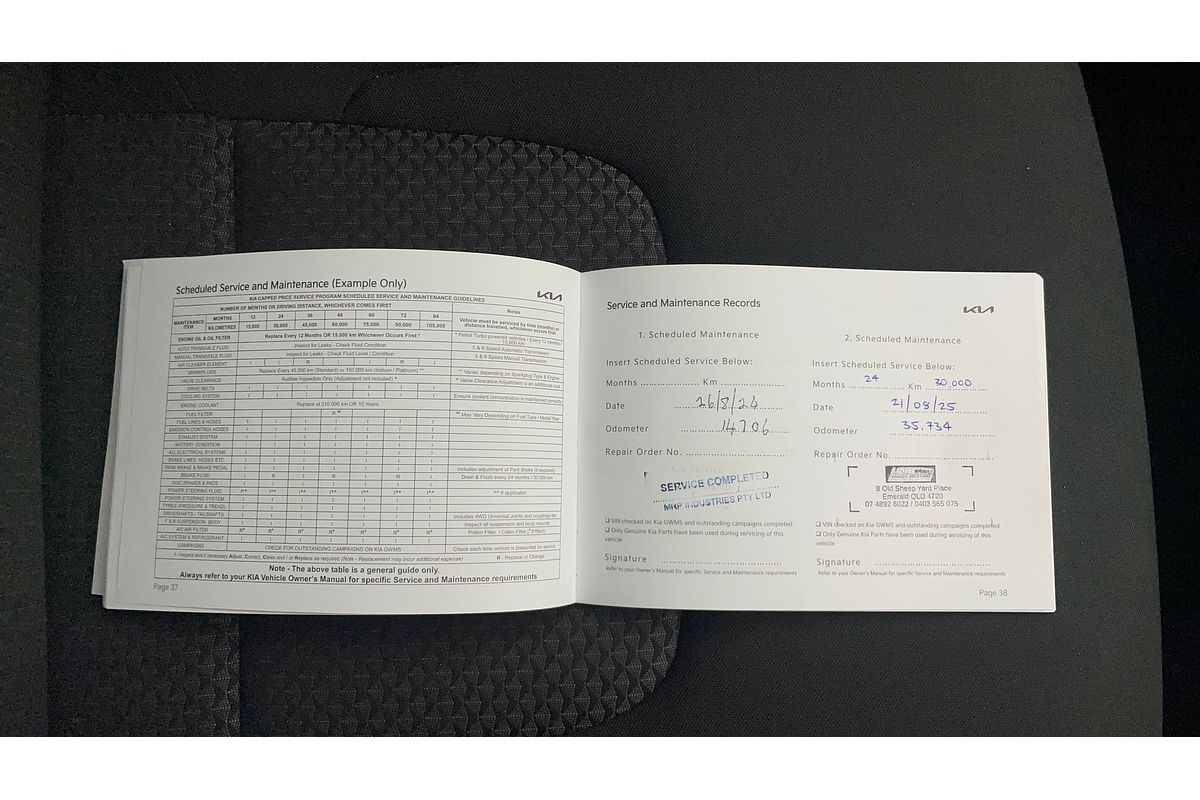 Scheduled Service and Maintenance (Example Only)
KIA
KIA CAPPED PRICE SERVICE PROGRAM SCHEDULED SERVICE AND MAINTENANCE GUIDELINES
NUMBER OF MONTHS OR DRIVING DISTANCE, WHICHEVER COMES FIRST
Notes
MAINTENANCE ITEM
MONTHS 12 24 36 48 60 72 84
Vehicle must be serviced by time (months) or distance travelled, whichever occurs first
KILOMETRES 15,000 30,000 45,000 60,000 75,000 90,000 105,000
ENGINE OIL & OIL FILTER Replace Every 12 Months OR 15,000 km Whichever Occurs First * * Petrol Turbo powered vehicles - Every 12 months / 10,000 km
AUTO TRANSAXLE FLUID Inspect for Leaks - Check Fluid Condition 5 & 6 Speed Automatic Transmission
MANUAL TRANSAXLE FLUID Inspect for Leaks - Check Fluid Level / Condition 5 & 6 Speed Manual Transmission
AIR CLEANER ELEMENT I I R I I R I
SPARKPLUGS Replace Every 45,000 km (Standard) or 150,000 km (Iridium / Platinum) ** ** Varies depending on Sparkplug Type & Engine
VALVE CLEARANCE Audible Inspection Only (Adjustment not included) ^ ^ Valve Clearance Adjustment is an additional cost
DRIVE BELTS I I I I I I I
COOLING SYSTEM I I I I I I I Ensure coolant concentration is maintained correctly
ENGINE COOLANT Replace at 210,000 km OR 10 Years
FUEL FILTER R ## ## May Vary Depending on Fuel Type / Model Year
FUEL LINES & HOSES I I I I I I I
EMISSION CONTROL HOSES I I I I I I I
EXHAUST SYSTEM I I I I I I I
BATTERY CONDITION I I I I I I I
ALL ELECTRICAL SYSTEMS I I I I I I I
BRAKE LINES, HOSES ETC. I I I I I I I
PARK BRAKE & BRAKE PEDAL I I I I I I I Includes adjustment of Park Brake (if required)
BRAKE FLUID I R I R I R I Drain & Flush every 24 months / 30,000 km
DISC BRAKES & PADS I I I I I I I
POWER STEERING FLUID I^^ I^^ I^^ I^^ I^^ I^^ I^^ ^^ If applicable
POWER STEERING SYSTEM I I I I I I I
TYRES (PRESSURE & TREAD) I I I I I I I
DRIVESHAFTS / TAILSHAFTS I I I I I I I Includes 4WD Universal Joints and couplings etc
F & R SUSPENSION, BODY I I I I I I I Inspect all suspension and body mounts
A/C AIR FILTER R# R# R# R# R# R# R# Pollen Filter / Cabin Filter (# If fitted)
A/C SYSTEM & REFRIGERANT I I I I I I I
CAMPAIGNS CHECK FOR OUTSTANDING CAMPAIGNS ON KIA GWMS Check each time vehicle is presented for service
I - Inspect and if necessary Adjust, Correct, Clean and / or Replace as required (Note - Replacement may incur additional expense) R - Replace or Change
Note - The above table is a general guide only.
Always refer to your KIA Vehicle Owner's Manual for specific Service and Maintenance requirements
Page 37
Service and Maintenance Records
KIA
1. Scheduled Maintenance
Insert Scheduled Service Below:
Months .................. Km ..................
Date 26/8/24
Odometer 14706
Repair Order No. ..................
Kia Service
SERVICE COMPLETED
MNP INDUSTRIES PTY LTD
❑ VIN checked on Kia GWMS and outstanding campaigns completed
❑ Only Genuine Kia Parts have been used during servicing of this vehicle
Signature ..................
Refer to your Owner's Manual for specific Service and Maintenance requirements
2. Scheduled Maintenance
Insert Scheduled Service Below:
Months 24 Km 30,000
Date 21/08/25
Odometer 35.734
Repair Order No. ..................
8 Old Sheep Yard Place
Emerald QLD 4720
07 4892 6022 / 0403 565 075
❑ VIN checked on Kia GWMS and outstanding campaigns completed
❑ Only Genuine Kia Parts have been used during servicing of this vehicle
Signature ..................
Refer to your Owner's Manual for specific Service and Maintenance requirements
Page 38